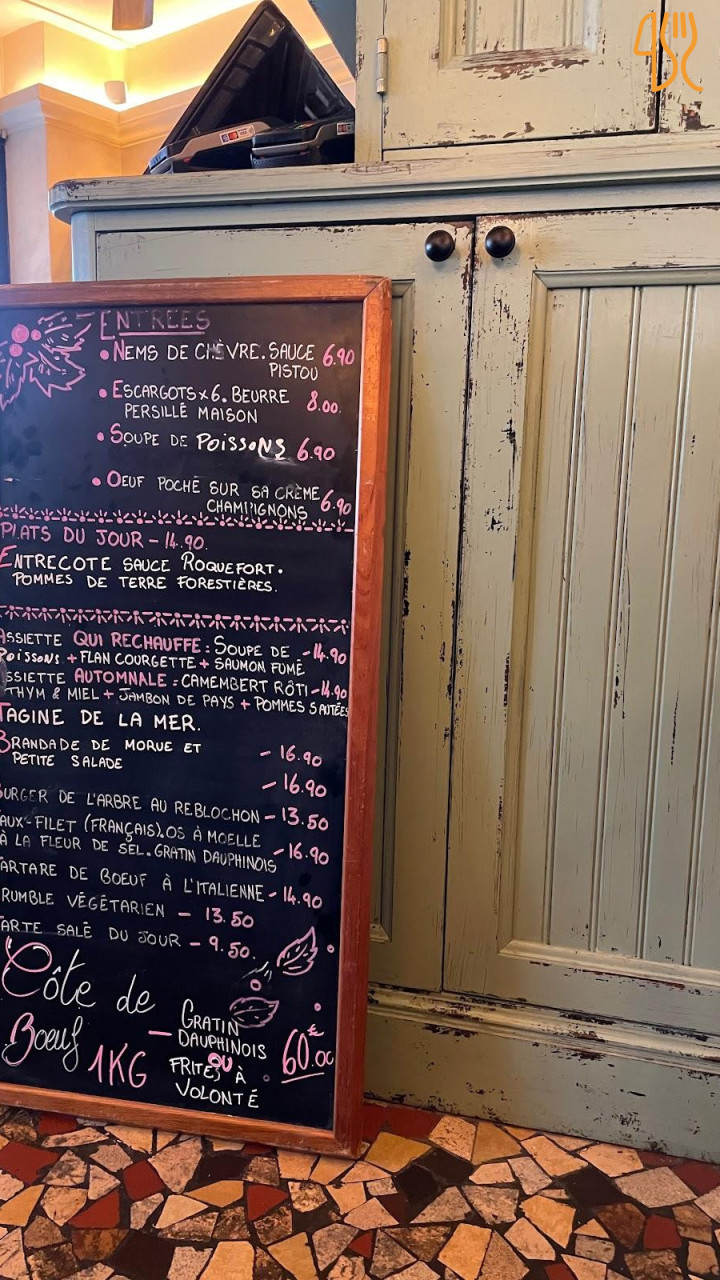 ENTRÉES
• NEMS DE CHÈVRE. SAUCE 6.90
PISTOU
• ESCARGOTS x 6. BEURRE 8.00.
PERSILLÉ MAISON
• SOUPE DE POISSONS 6.90
• OEUF POCHÉ SUR SA CRÈME 6.90
CHAMPIGNONS
PLATS DU JOUR - 14.90.
ENTRECOTE SAUCE ROQUEFORT.
POMMES DE TERRE FORESTIÈRES.
ASSIETTE QUI RECHAUFFE : SOUPE DE - 14.90
POISSONS + FLAN COURGETTE + SAUMON FUMÉ
ASSIETTE AUTOMNALE : CAMEMBERT RÔTI - 14.90
THYM & MIEL + JAMBON DE PAYS + POMMES SAUTÉES
TAGINE DE LA MER.
BRANDADE DE MORUE ET - 16.90
PETITE SALADE
- 16.90
BURGER DE L'ARBRE AU REBLOCHON - 13.50
AUX-FILET (FRANÇAIS). OS À MOELLE
À LA FLEUR DE SEL. GRATIN DAUPHINOIS - 16.90
TARTARE DE BOEUF À L'ITALIENNE - 14.90
RUMBLE VÉGÉTARIEN - 13.50
TARTE SALÉ DU JOUR - 9.50.
Côte de
Boeuf 1KG
— GRATIN
DAUPHINOIS
OU
FRITES À
VOLONTÉ
60.00€